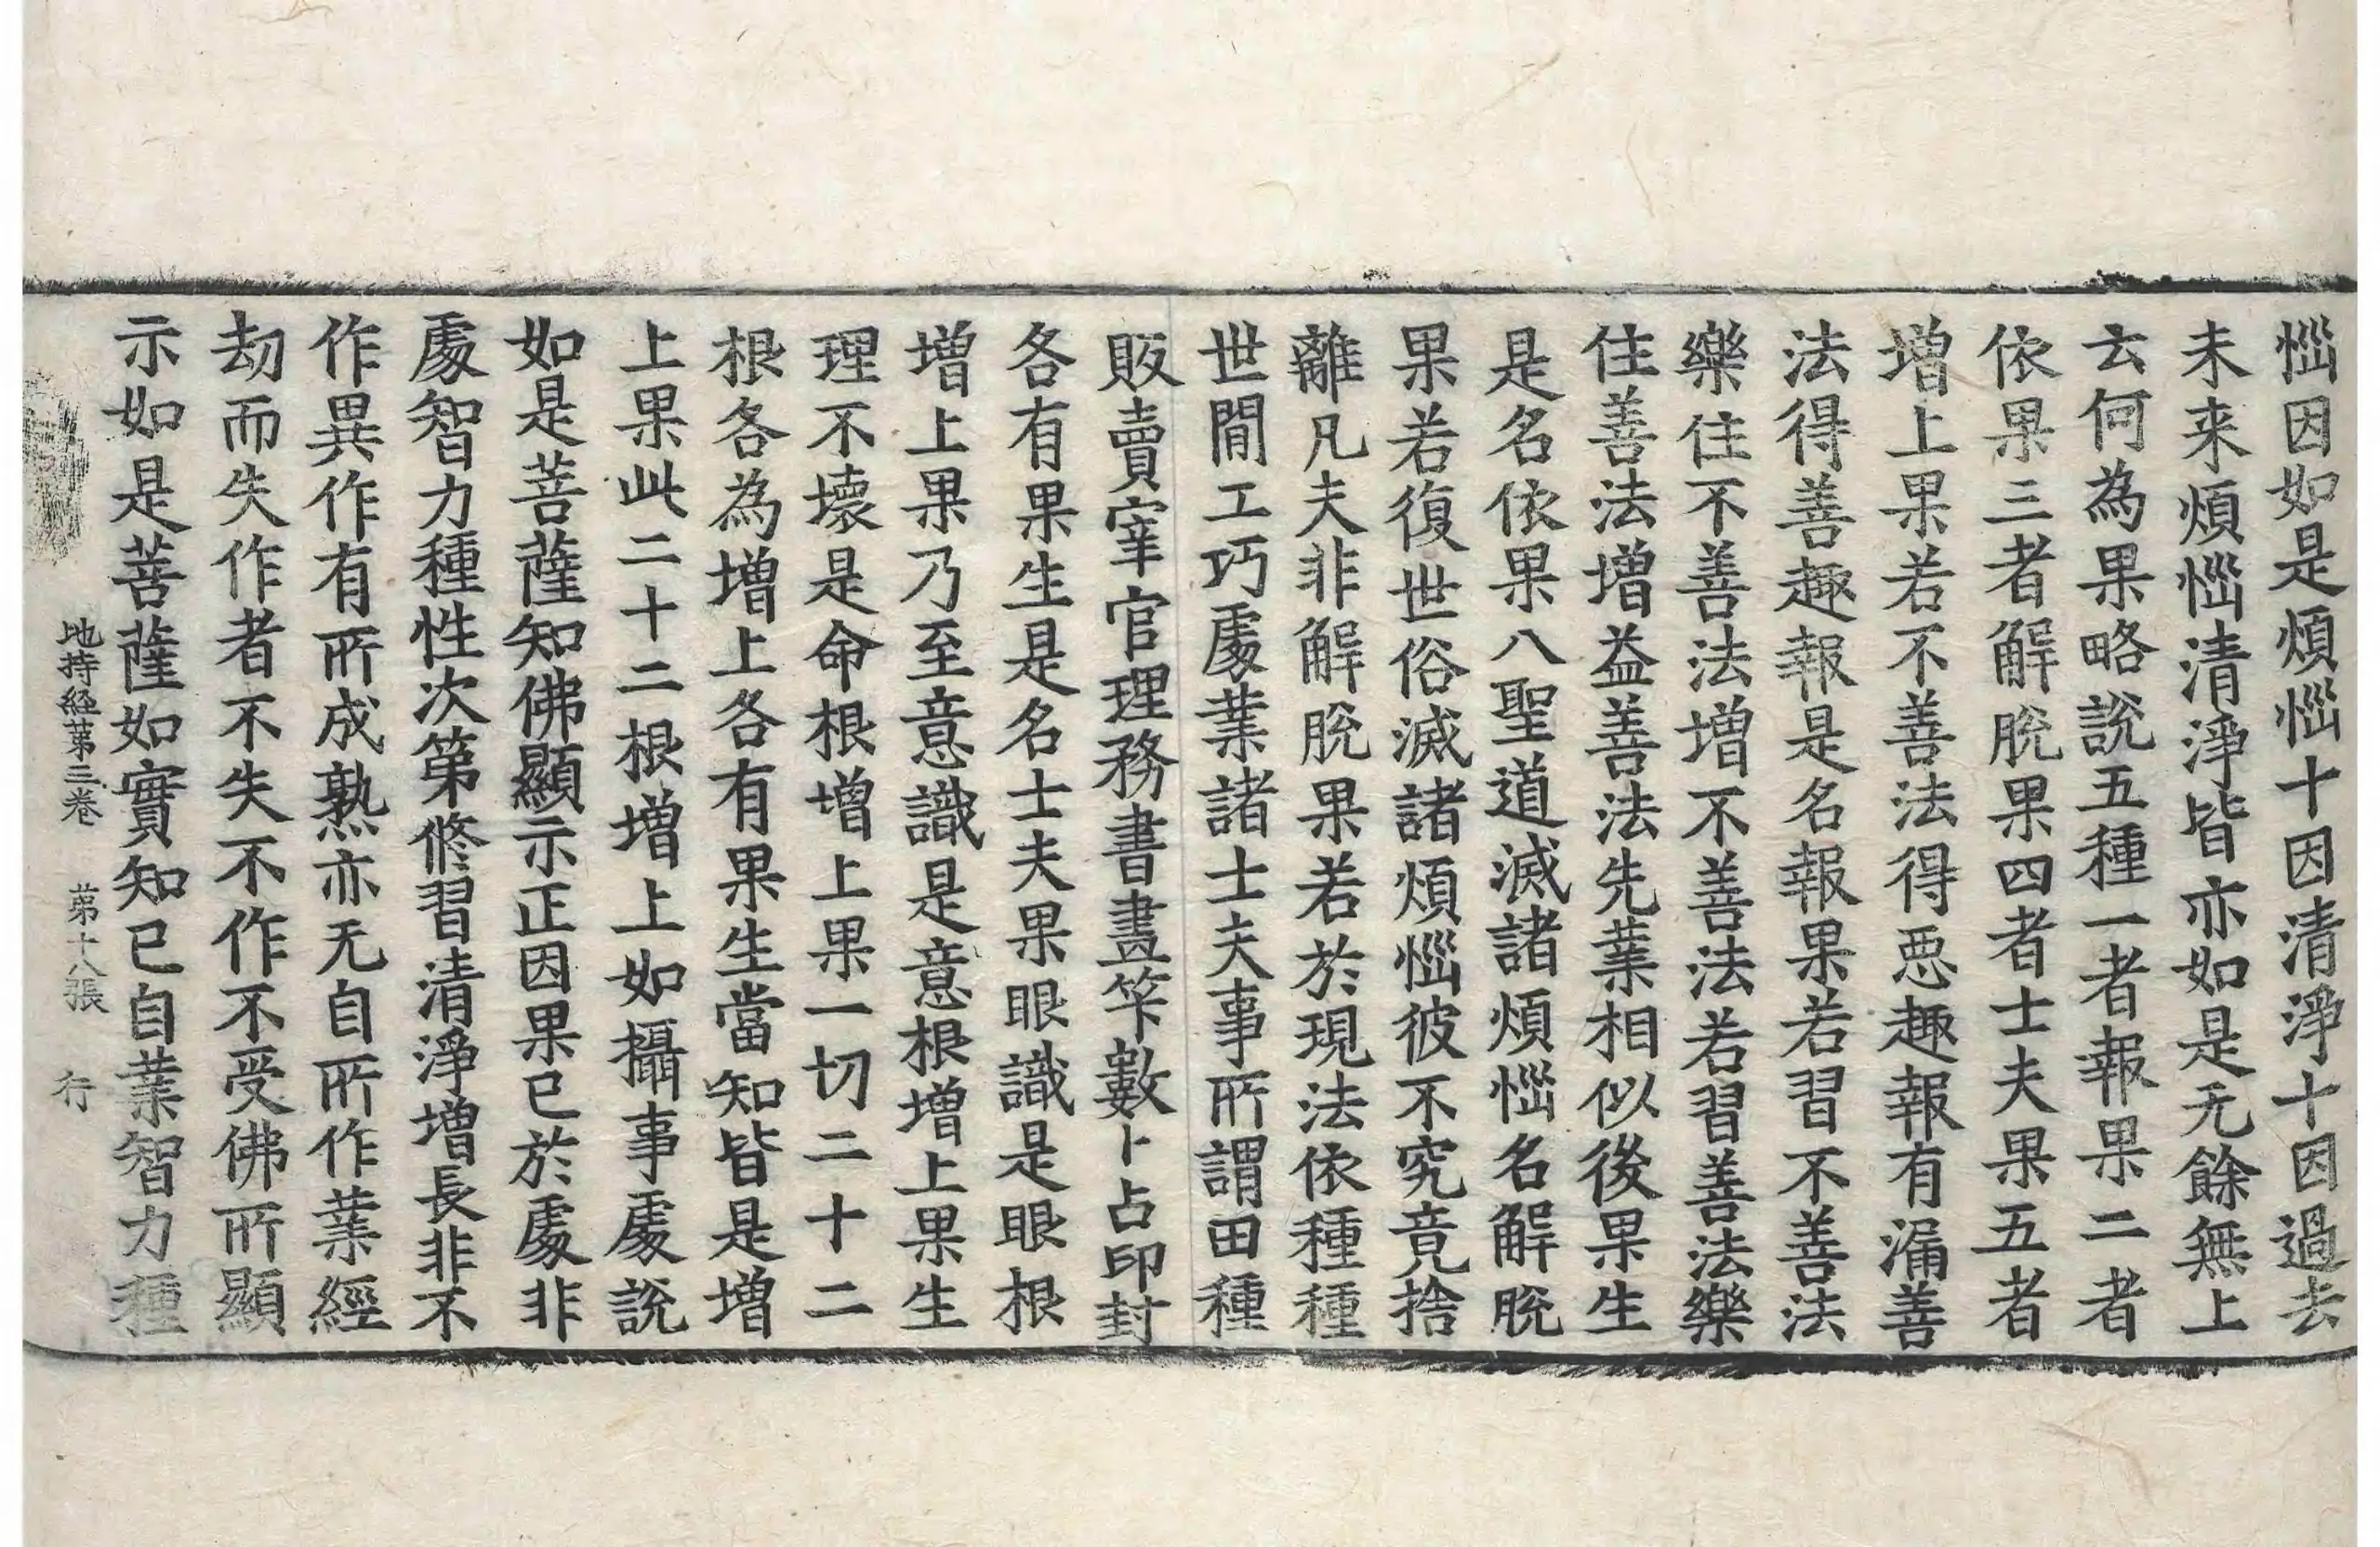 惱因如是煩惱十因清淨十因過去
未来煩惱清淨皆亦如是无餘無上
云何為果略說五種一者報果二者
依果三者解脫果四者士夫果五者
增上果若不善法得惡趣報有漏善
法得善趣報是名報果若習不善法
樂住不善法增不善法若習善法樂
住善法增益善法先業相似後果生
是名依果八聖道滅諸煩惱名解脫
果若復世俗滅諸煩惱彼不究竟捨
離凡夫非解脫果若於現法依種種
世閒工巧處業諸士夫事所謂田種
販賣宰官理務書畫筭數卜占印封
各有果生是名士夫果眼識是眼根
增上果乃至意識是意根增上果生
理不壞是命根增上果一切二十二
根各為增上各有果生當知皆是增
上果此二十二根增上如攝事處說
如是菩薩知佛顯示正因果已於處非
處智力種性次第修習清淨增長非不
作異作有所成熟亦无自所作業經
劫而失作者不失不作不受佛所顯
示如是菩薩如實知已自業智力種
地持経第三卷 第十八張 行